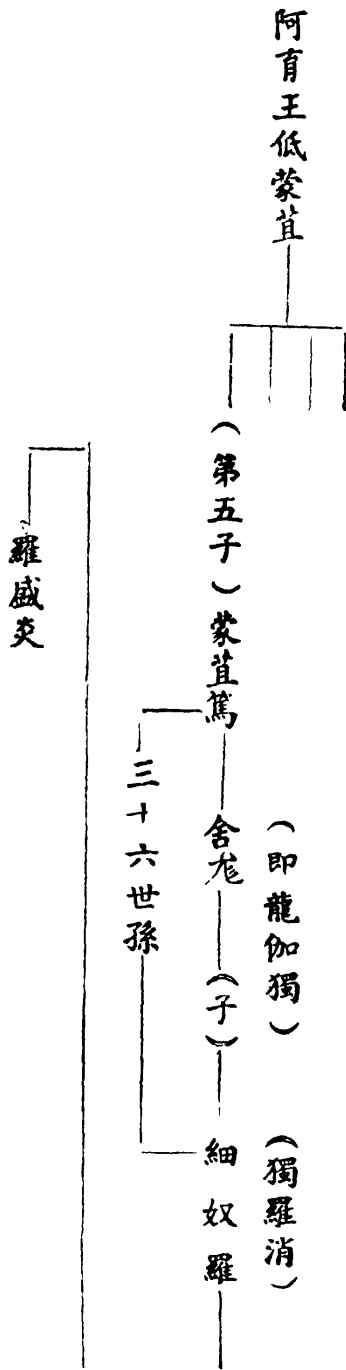 阿育王低蒙苴
（第五子）蒙苴篤
（即龍伽獨）
舍龙
（子）
（獨羅消）
細奴羅
三十六世孫
羅盛炎